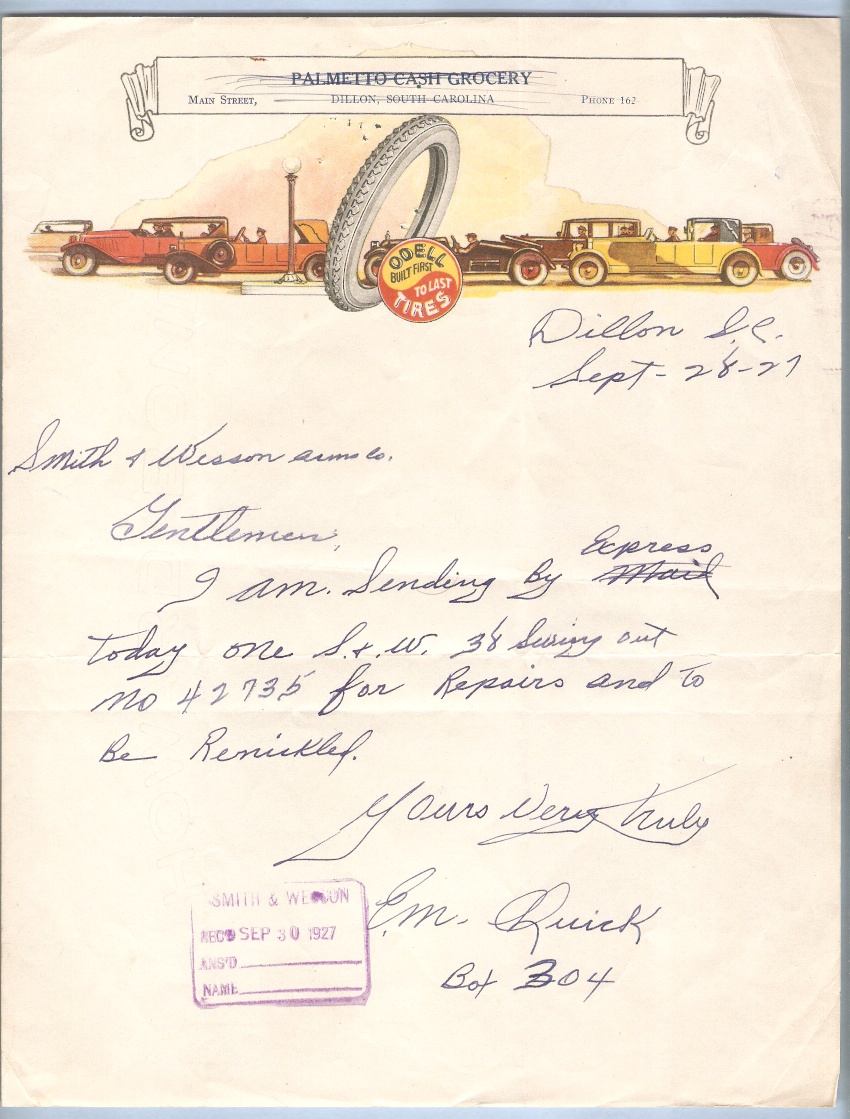 PALMETTO CASH GROCERY
MAIN STREET, DILLON, SOUTH CAROLINA PHONE 162
ODELL
BUILT FIRST
TO LAST
TIRES
Dillon S.C.
Sept - 28-27
Smith & Wesson arms co.
Gentlemen,
Express
I am. Sending By Mail
today one S.&.W. 38 Swing out
no 42735 for Repairs and to
Be Renickled.
Yours Very Truly
E.M. Quick
Box 304
SMITH & WESSON
REC'D SEP 30 1927
ANS'D
NAME